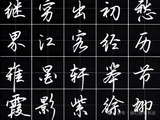 继穷出初愁
界江客经历
雅墨轩举节
霞影紫徐柳